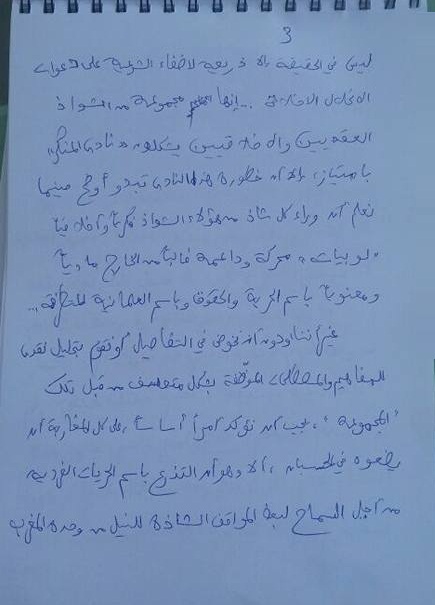 3
ليس في الحقيقة إلا ذريعة لإضفاء الشرعية على دعوات
الانحلال الأخلاقي ... إنها مجموعة من الشواذ
العقديين والأخلاقيين يشكلون "نادي المنكر"
بامتياز، إلا أن خطورة هذا النادي تبدو أوضح حينما
نعلم أن وراء كل شاذ من هؤلاء الشواذ فكريا وأخلاقيا
"لوبيات" محركة وداعمة غالبا من الخارج ماديا
ومعنويا باسم الحرية والحقوق وباسم العلمانية المتطرفة...
غير أننا ودون أن نخوض في التفاصيل أو نقوم بتحليل نقدي
للمفاهيم والمصطلحات الموظفة بشكل متعسف من قبل تلك
"المجموعة"، يجب أن نؤكد أمرا أساسا على كل المغاربة أن
يضعوه في الحسبان، ألا وهو أن التذرع باسم الحريات الفردية
من أجل السماح لبعض المواقف الشاذة للنيل من وحدة المغرب